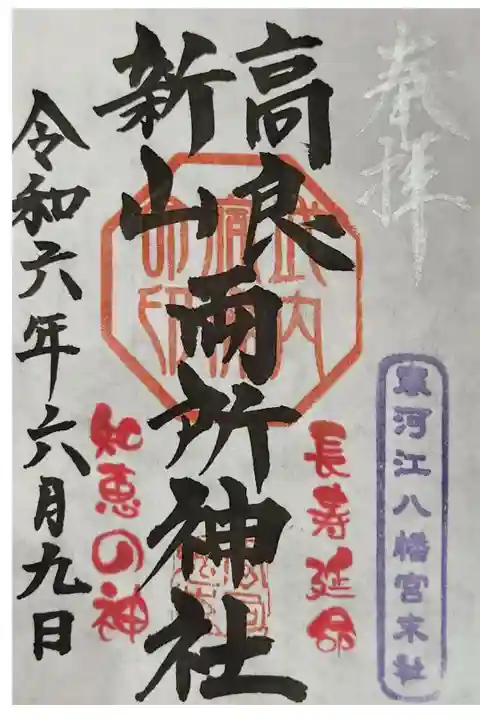 奉拝
寒河江八幡宮末社
長寿延命
高良
新山
両所神社
知恵の神
令和六年六月九日